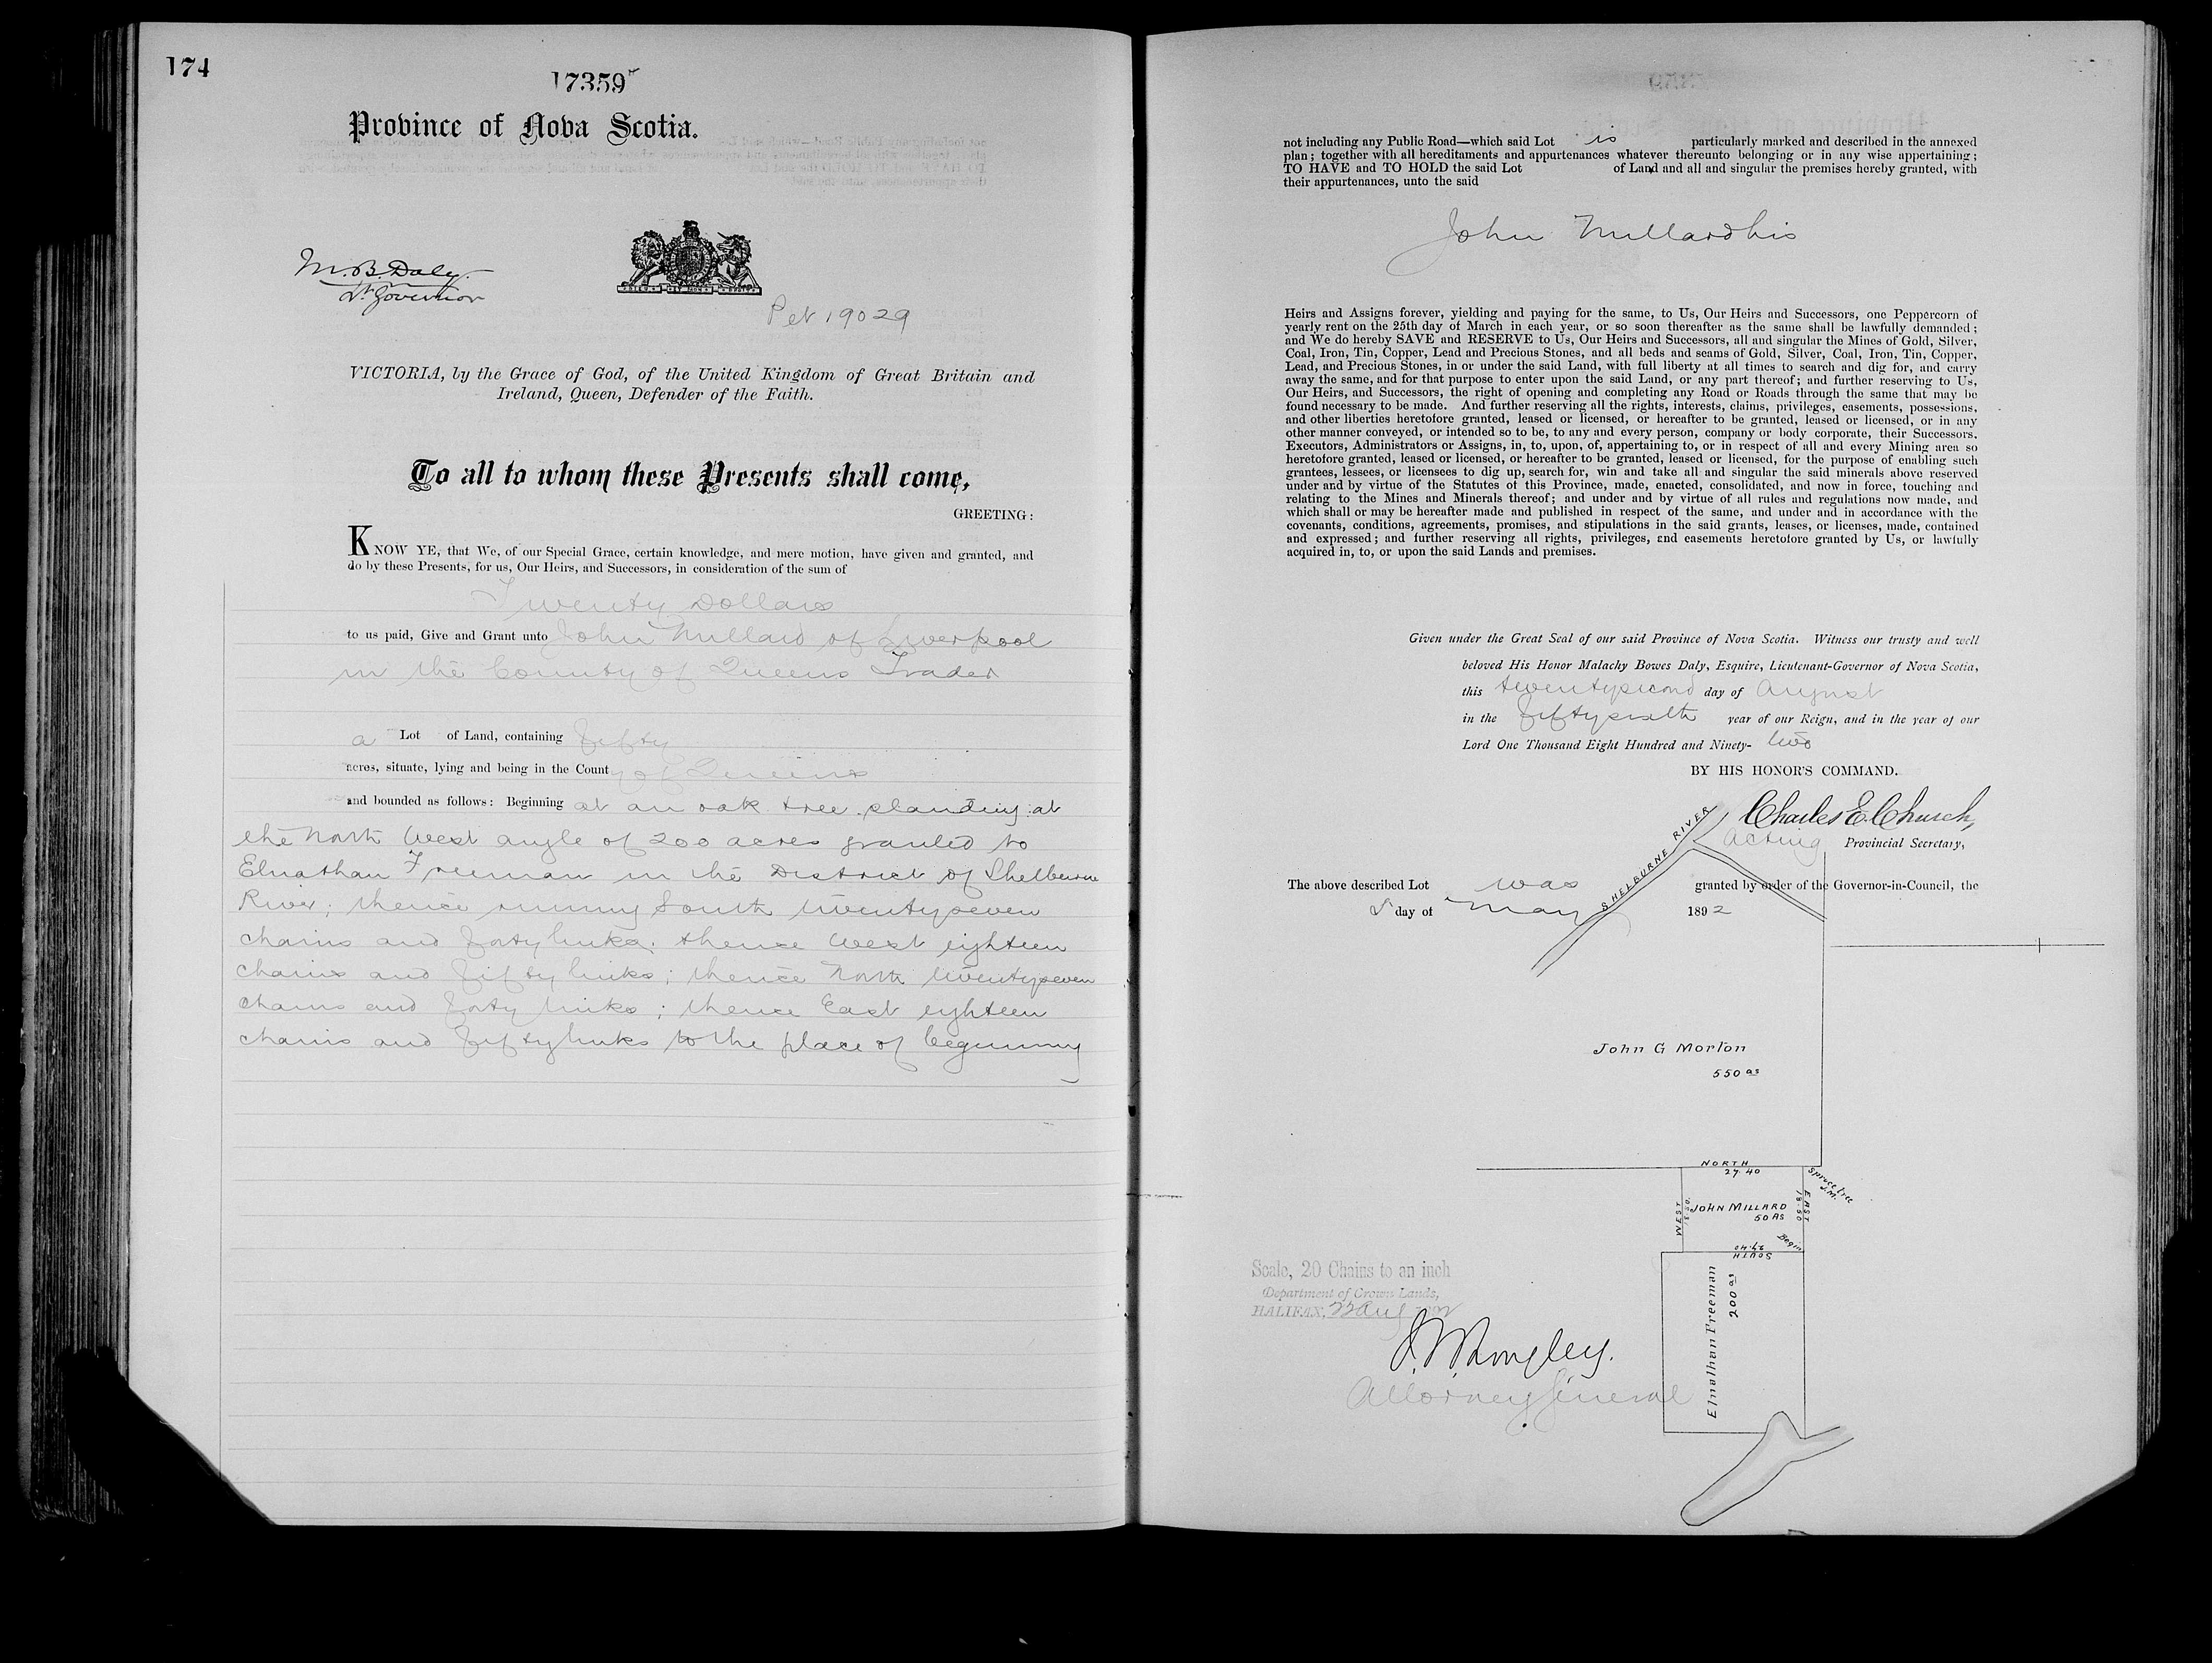 174
17359
Province of Nova Scotia.
M.B. Daly.
Lt Governor
Pet 19029
VICTORIA, by the Grace of God, of the United Kingdom of Great Britain and
Ireland, Queen, Defender of the Faith.
To all to whom these Presents shall come,
GREETING:
KNOW YE, that We, of our Special Grace, certain knowledge, and mere motion, have given and granted, and
do by these Presents, for us, Our Heirs, and Successors, in consideration of the sum of
Twenty Dollars
to us paid, Give and Grant unto John Millard of Liverpool
in the County of Queens Trader
a Lot of Land, containing fifty
acres, situate, lying and being in the County of Queens
and bounded as follows: Beginning at an oak tree standing at
the North West angle of 200 acres granted to
Elnathan Freeman in the District of Shelburne
River; thence running South twentyseven
chains and forty links; thence West eighteen
chains and fifty links; thence North twentyseven
chains and forty links; thence East eighteen
chains and fifty links to the place of beginning
not including any Public Road—which said Lot is particularly marked and described in the annexed
plan; together with all hereditaments and appurtenances whatever thereunto belonging or in any wise appertaining;
TO HAVE and TO HOLD the said Lot of Land and all and singular the premises hereby granted, with
their appurtenances, unto the said
John Millard his
Heirs and Assigns forever, yielding and paying for the same, to Us, Our Heirs and Successors, one Peppercorn of
yearly rent on the 25th day of March in each year, or so soon thereafter as the same shall be lawfully demanded;
and We do hereby SAVE and RESERVE to Us, Our Heirs and Successors, all and singular the Mines of Gold, Silver,
Coal, Iron, Tin, Copper, Lead and Precious Stones, and all beds and seams of Gold, Silver, Coal, Iron, Tin, Copper,
Lead, and Precious Stones, in or under the said Land, with full liberty at all times to search and dig for, and carry
away the same, and for that purpose to enter upon the said Land, or any part thereof; and further reserving to Us,
Our Heirs, and Successors, the right of opening and completing any Road or Roads through the same that may be
found necessary to be made. And further reserving all the rights, interests, claims, privileges, easements, possessions,
and other liberties heretofore granted, leased or licensed, or hereafter to be granted, leased or licensed, or in any
other manner conveyed, or intended so to be, to any and every person, company or body corporate, their Successors,
Executors, Administrators or Assigns, in, to, upon, of, appertaining to, or in respect of all and every Mining area so
heretofore granted, leased or licensed, or hereafter to be granted, leased or licensed, for the purpose of enabling such
grantees, lessees, or licensees to dig up, search for, win and take all and singular the said minerals above reserved
under and by virtue of the Statutes of this Province, made, enacted, consolidated, and now in force, touching and
relating to the Mines and Minerals thereof; and under and by virtue of all rules and regulations now made, and
which shall or may be hereafter made and published in respect of the same, and under and in accordance with the
covenants, conditions, agreements, promises, and stipulations in the said grants, leases, or licenses, made, contained
and expressed; and further reserving all rights, privileges, and easements heretofore granted by Us, or lawfully
acquired in, to, or upon the said Lands and premises.
Given under the Great Seal of our said Province of Nova Scotia. Witness our trusty and well
beloved His Honor Malachy Bowes Daly, Esquire, Lieutenant-Governor of Nova Scotia,
this twentysecond day of August
in the fiftysixth year of our Reign, and in the year of our
Lord One Thousand Eight Hundred and Ninety- two
BY HIS HONOR'S COMMAND.
Charles E. Church,
Acting Provincial Secretary,
SHELBURNE RIVER
The above described Lot was granted by order of the Governor-in-Council, the
day of May 1892
John G Morton
550 as
NORTH
27.40
Spruce tree
J.M.
WEST
18.50
JOHN MILLARD
50 As
EAST
18.50
Begin
SOUTH
27.40
Elnathan Freeman
200 as
Scale, 20 Chains to an inch
Department of Crown Lands,
HALIFAX, 22 Aug 1892
J.W. Longley.
Attorney General